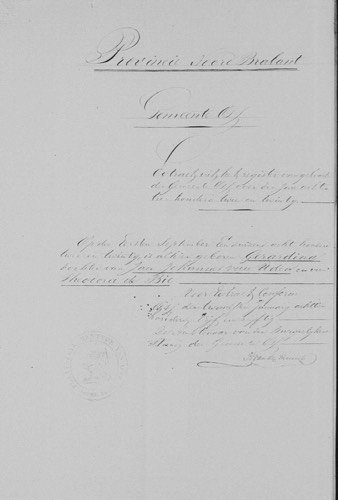 Provincie Noord Braband
Gemeente Oss
Extract uit het register van geboorte
der Gemeente Oss over den jare acht
tien honderd twee en twintig
Op den Eersten September achttien honderd
twee en twintig is alhier geboren Gerardina
dochter van Jan Johannes van Uden en van
de Bie
Voor Extract Conform
Oss den January achttien
honderd vijf en vijftig
De Ambtenaar van den Burgerlijken
Stand der Gemeente Oss